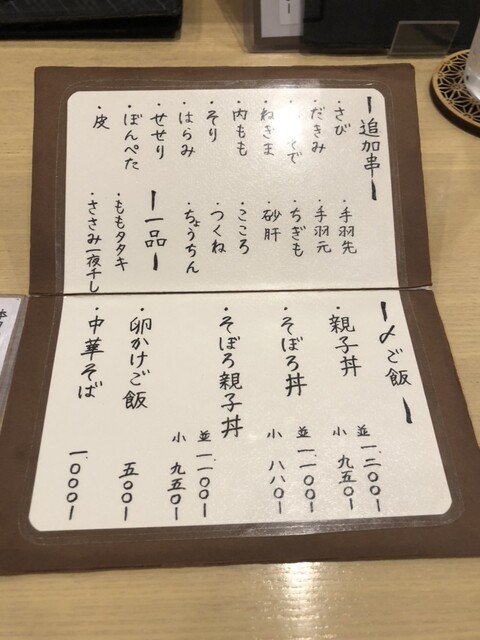 ー追加串ー
・さび
・手羽先
・だきみ
・手羽元
・ちぎも
・ねぎま
・砂肝
・内もも
・こころ
・そり
・つくね
・はらみ
・ちょうちん
・せせり
・ぼんぺた
・皮
ー一品ー
・ももタタキ
・ささみ一夜干し
ー〆ご飯ー
・親子丼
並 一.二〇〇ー
小 九五〇ー
・そぼろ丼
並 一.一〇〇ー
小 八八〇ー
・そぼろ親子丼
並 一.一〇〇ー
小 九五〇ー
・卵かけご飯
五〇〇ー
・中華そば
一.〇〇〇ー